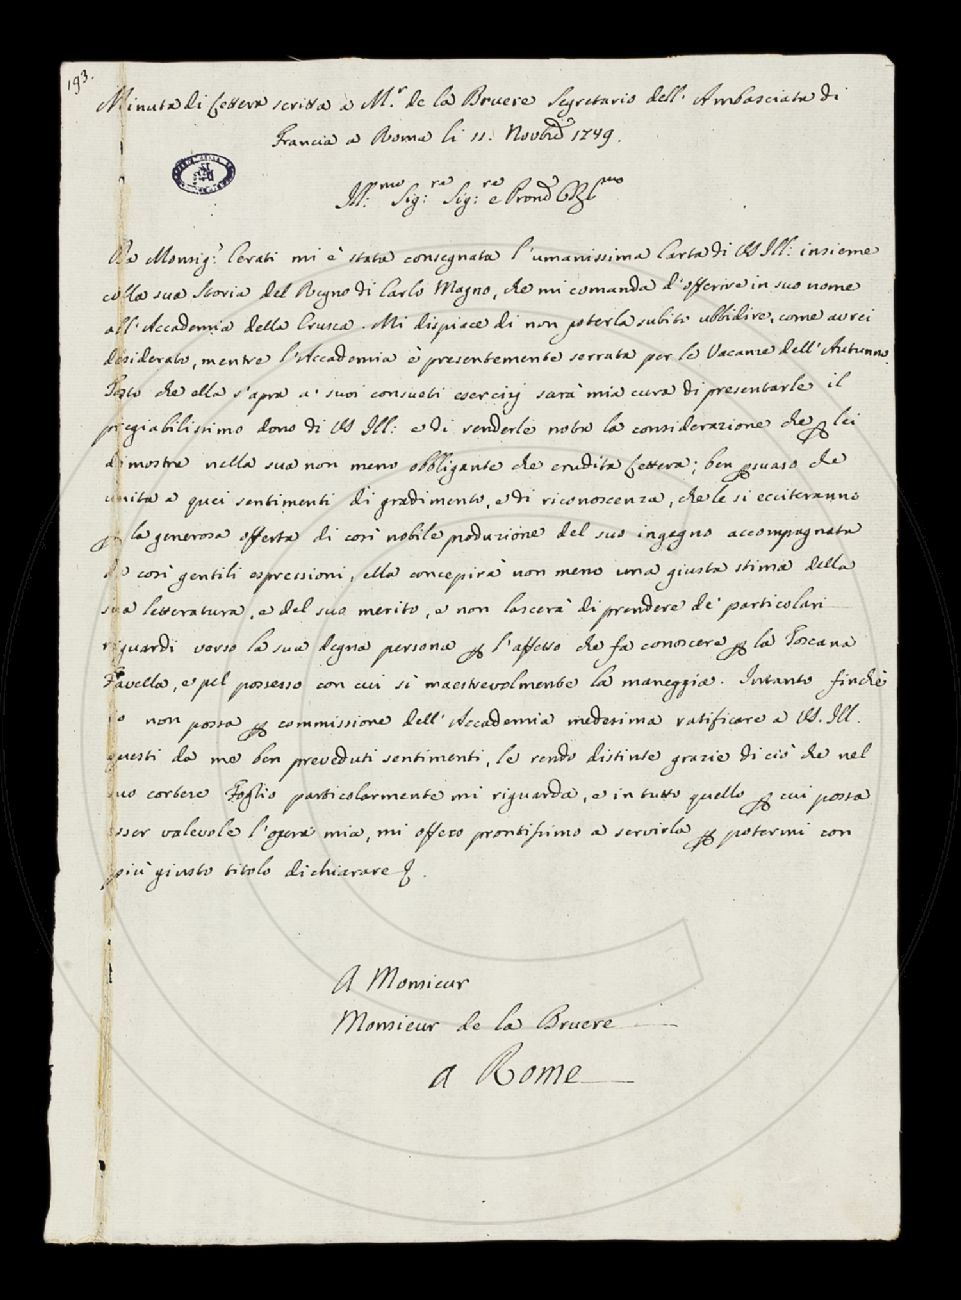 193.
Minuta di Lettera scritta a M.r de la Bruere Segretario dell' Ambasciata di
Francia a Roma li 11. Novbre 1749.
Ill:mo Sig:re Sig:re e Pron
Da Monsig.r Cerati mi è stata consegnata l'umanissima Carta di VS Ill: insieme
colla sua Storia del Regno di Carlo Magno, che mi comanda d'offerire in suo nome
all'Accademia della Crusca. Mi dispiace di non poterla subito ubbidire, come avrei
desiderato, mentre l'Accademia è presentemente serrata per le Vacanze dell'Autunno.
Tosto che ella s'apra a' suoi consueti esercizj sarà mia cura di presentarle il
pregiabilissimo dono di VS Ill: e di renderle nota la considerazione che p lei
dimostra nella sua non meno obbligante che erudita Lettera; ben psuaso che
unita a quei sentimenti di gradimento, e di riconoscenza, che le si ecciteranno
p la generosa offerta di così nobile produzione del suo ingegno accompagnata
da così gentili espressioni, ella concepirà non meno una giusta stima della
sua letteratura, e del suo merito, e non lascerà di prendere de' particolari
riguardi verso la sua degna persona p l'affetto che fa conoscere p la Toscana
Favella, e pel possesso con cui sì maestrevolmente la maneggia. Intanto finchè
io non possa p commissione dell'Accademia medesima ratificare a VS. Ill.
questi da me ben preveduti sentimenti, le rendo distinte grazie di ciò che nel
suo cortese Foglio particolarmente mi riguarda, e in tutto quello p cui possa
esser valevole l'opera mia, mi offero prontissimo a servirla p potermi con
più giusto titolo dichiarare
A Monsieur
Monsieur de la Bruere
a Rome